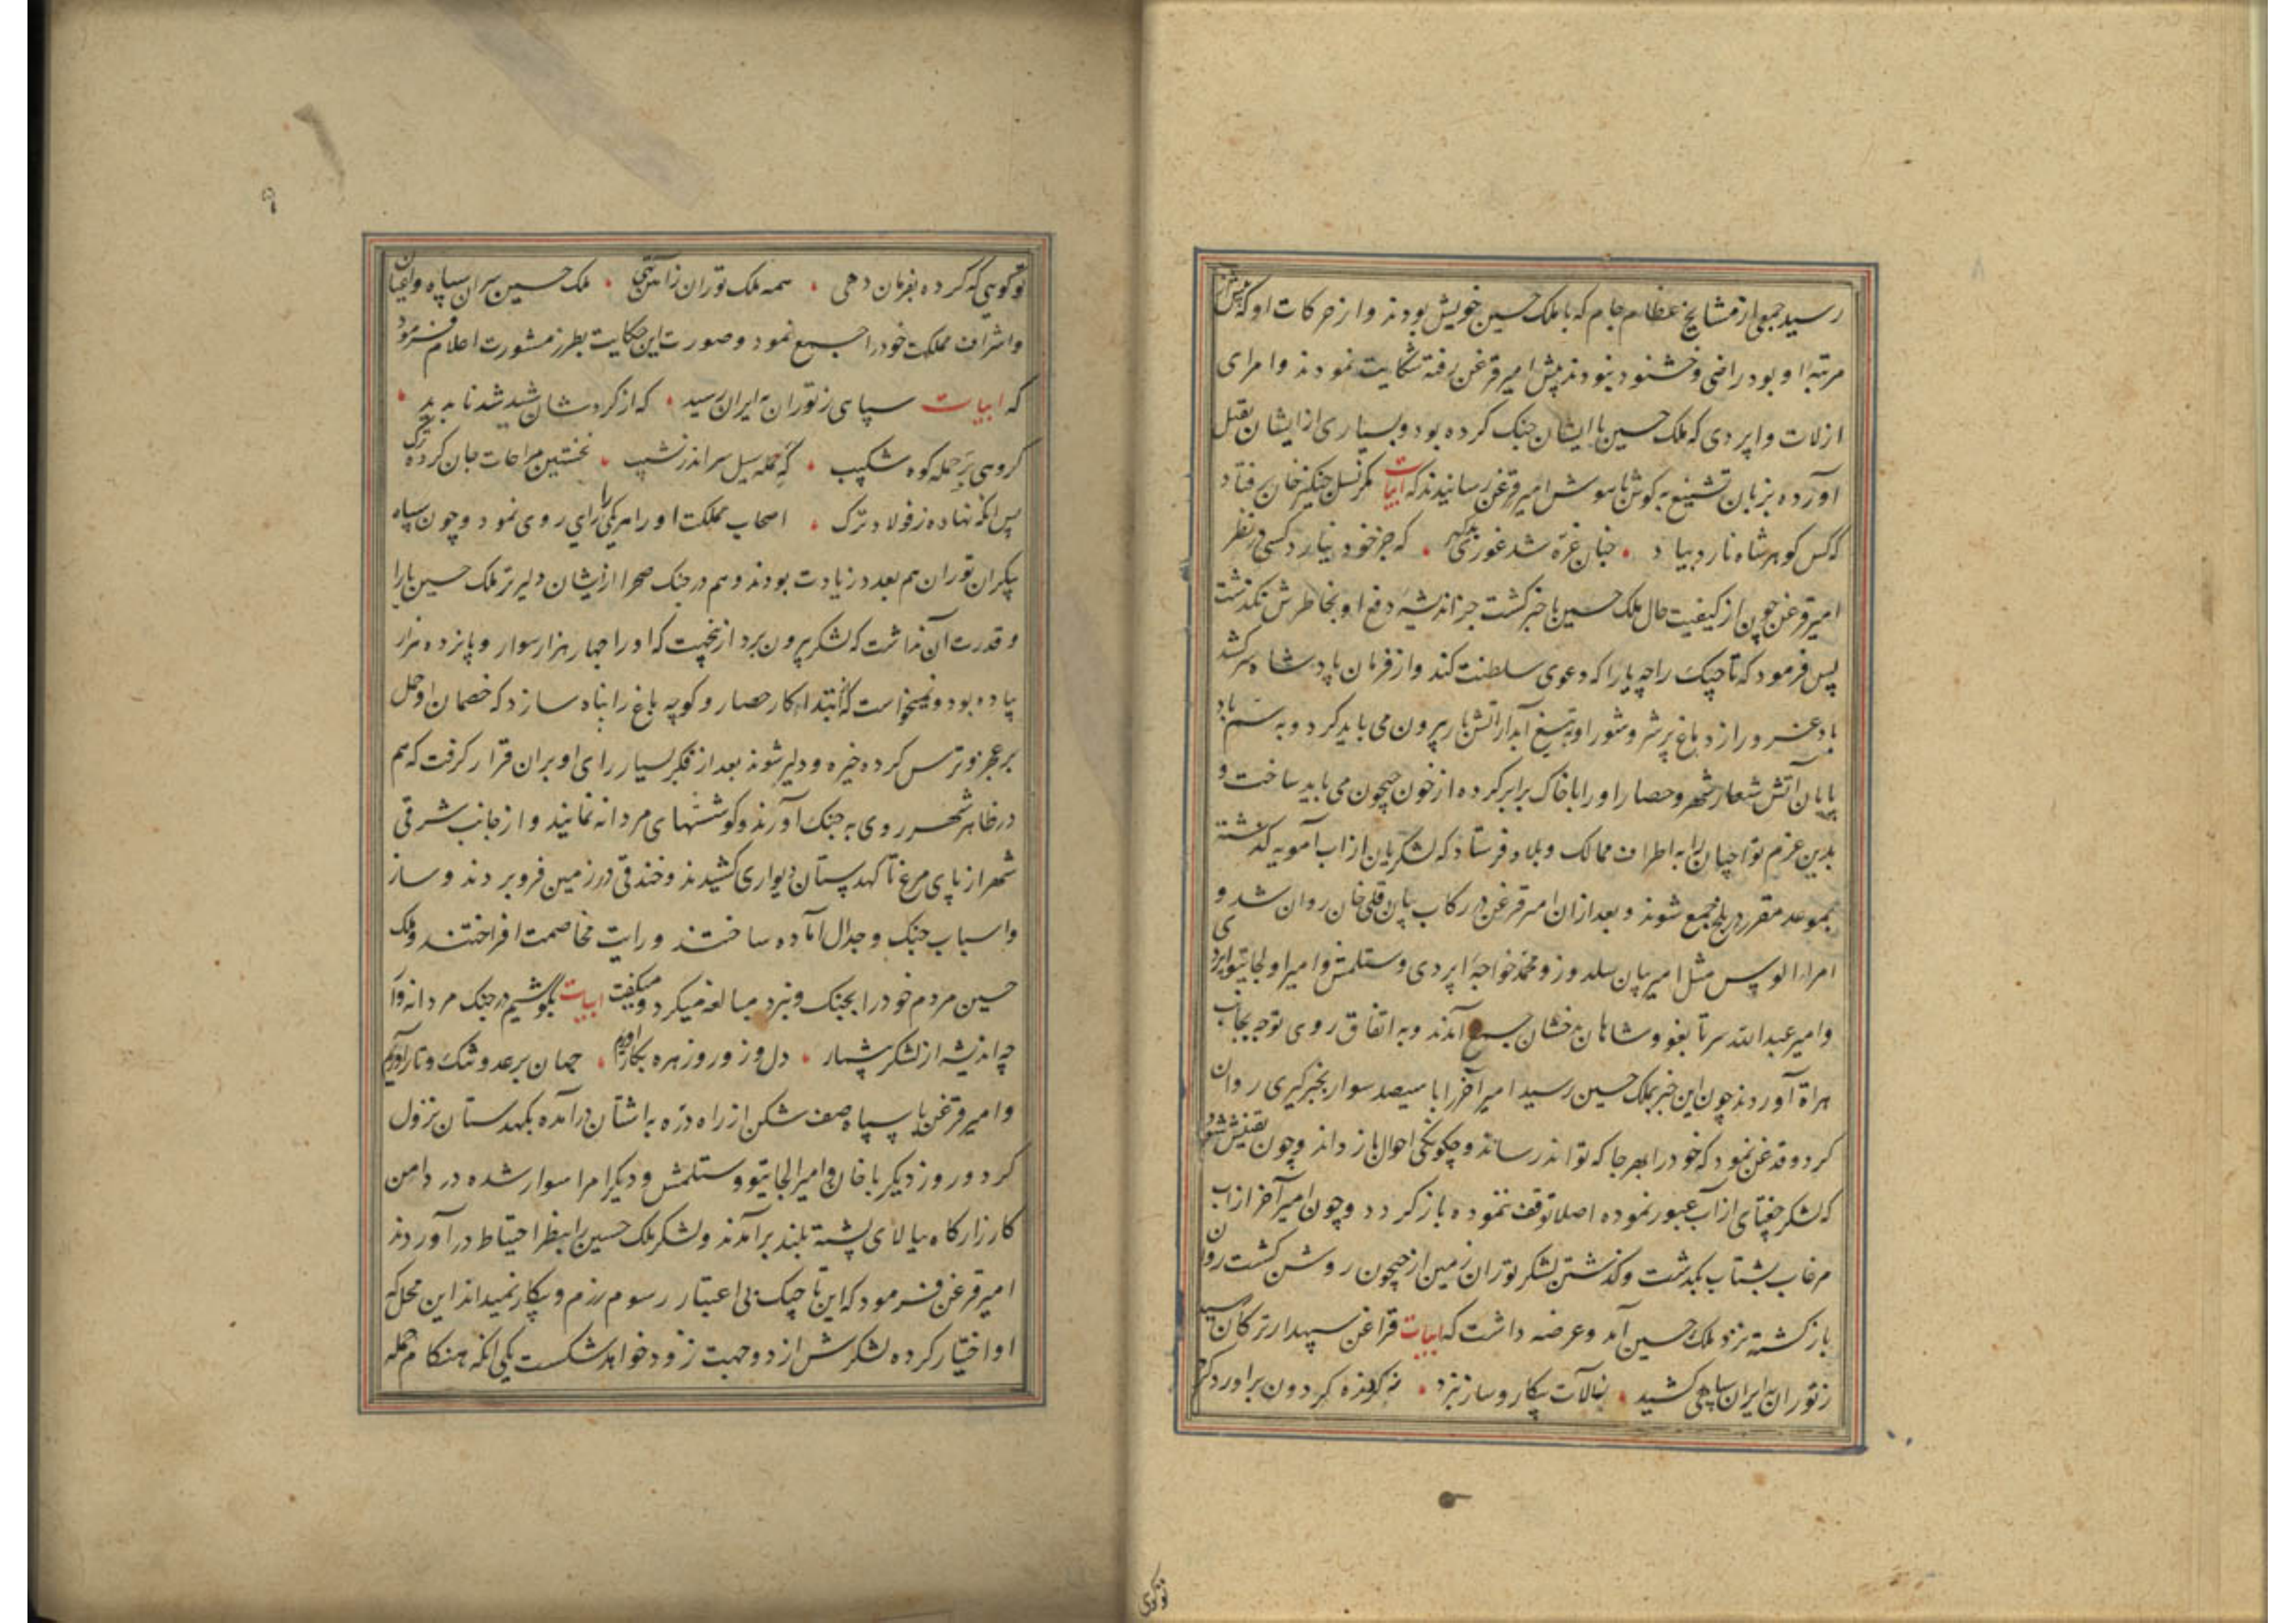 رسید جمعی از مشایخ عظام جام که با ملک حسین خویش بودند و از حرکات او که بیش از
مرتبهٔ او بود راضی و خشنود نبودند پیش امیر قزغن رفته شکایت نمودند و امرای
ارلات و اپردی که ملک حسین با ایشان جنک کرده بود و بسیاری از ایشان بقتل
آورده بزبان تشنیع به کوش هوش امیر قزغن رسانیدند که ابیات مکر نسل چنکیز خان برفتاد
که کس کوهر شاه نارد بیاد چنان غرّه شد غوری بدکهر که جز خود نیارد کسی در نظر
امیر قزغن چون از کیفیت حال ملک حسین باخبر کشت جز اندیشهٔ دفع او بخاطرش نکذشت
پس فرمود که تاجیک را چه یارا که دعوی سلطنت کند و از فرمان پادشاه سر کشد
باد غرور از دماغ پر شر و شور او بتیغ آبدار آتش بار بیرون می باید کرد و به سم باد
پایان آتش شعار شهر و حصار او را با خاک برابر کرده از خون جیحون می باید ساخت و
بدین عزم تواجیان را به اطراف ممالک و بلاد فرستاد که لشکریان از اب آمویه کذشته
بموعد مقرر در بلخ جمع شوند و بعد از ان امیر قزغن در رکاب بیان قلی خان روان شد و
امراء الوس مثل امیر بیان سلدوز و محمد خواجه اپردی و ستلمش و امیر اولجایتو اپردی
و امیر عبد الله سر تابغو و شاهان بدخشان جمع آمدند و به اتفاق روی توجه بجانب
هراة آوردند چون این خبر بملک حسین رسید امیر آخر را با سیصد سوار بخبرکیری روان
کرد و قدغن نمود که خود را بهر جا که تواند رساند و چکونکی احوال باز داند و چون یقینش شود
که لشکر جغتای از آب عبور نموده اصلا توقف ننموده باز کردد و چون امیر آخر از اب
مرغاب بشتاب بکذشت و کذشتن لشکر توران زمین از جیحون روشن کشت روان
باز کشته نزد ملک حسین آمد و عرضه داشت که ابیات قزاغن سپهدار ترکان رسید
ز توران به ایران سپاهی کشید بآلات پیکار و ساز نبرد ز کردنده کردون براورد کرد
توکویی
تو کویی که کرده بفرمان دهی همه ملک توران ز آهن تهی ملک حسین سران سپاه و اعیان
و اشراف مملکت خود را جمع نمود و صورت این حکایت بطرز مشورت اعلام فرمود
که ابیات سپاهی ز توران به ایران رسید که از کردشان شید شد ناپدید
کروهی بر حمله کوه شکیب که حمله سیل سر اندر نشیب نخستین مراعات جان کرده ترک
پس انکه نهاده ز فولاد ترک اصحاب مملکت او را هر یکی را رایی روی نمود و چون سپاه
بیکران توران هم بعدد زیادت بودند و هم در جنک صحرا از ایشان دلیرتر ملک حسین یارا
و قدرت آن نداشت که لشکر بیرون برد از ینجهت که او را چهار هزار سوار و پانزده هزار
پیاده بود و نمیخواست که ابتداء کار حصار و کوچه باغ را پناه سازد که خصمان او حمل
بر عجز و ترس کرده خیره و دلیر شوند بعد از فکر بسیار رای او بران قرار کرفت که هم
در ظاهر شهر روی به جنک آورند و کوششهای مردانه نمایند و از جانب شرقی
شهر از پای مرغ تا کهدستان دیواری کشیدند و خندقی در زمین فرو بردند و ساز
و اسباب جنک و جدال آماده ساختند و رایت مخاصمت افراختند و ملک
حسین مردم خود را بجنک و نبرد مبالغه میکرد و میکفت ابیات بکوشیم در جنک مردانه وار
چه اندیشه از لشکر بیشمار دل و زور و زهره بکار اوریم جهان بر عدو تنک و تار اوریم
و امیر قزغن با سپاه صف شکن از راه درّه به اشتان درآمده بکهدستان نزول
کرد و روز دیکر با خان و امیر الجایتو و ستلمش و دیکر امرا سوار شده در دامن
کارزارکاه ببالای پشته بلند برآمدند و لشکر ملک حسین را بنظر احتیاط درآوردند
امیر قزغن فرمود که این تاجیک بی اعتبار رسوم رزم و پیکار نمیداند این محل که
او اختیار کرده لشکرش از دو جهت زود خواهد شکست یکی انکه هنکام حمله